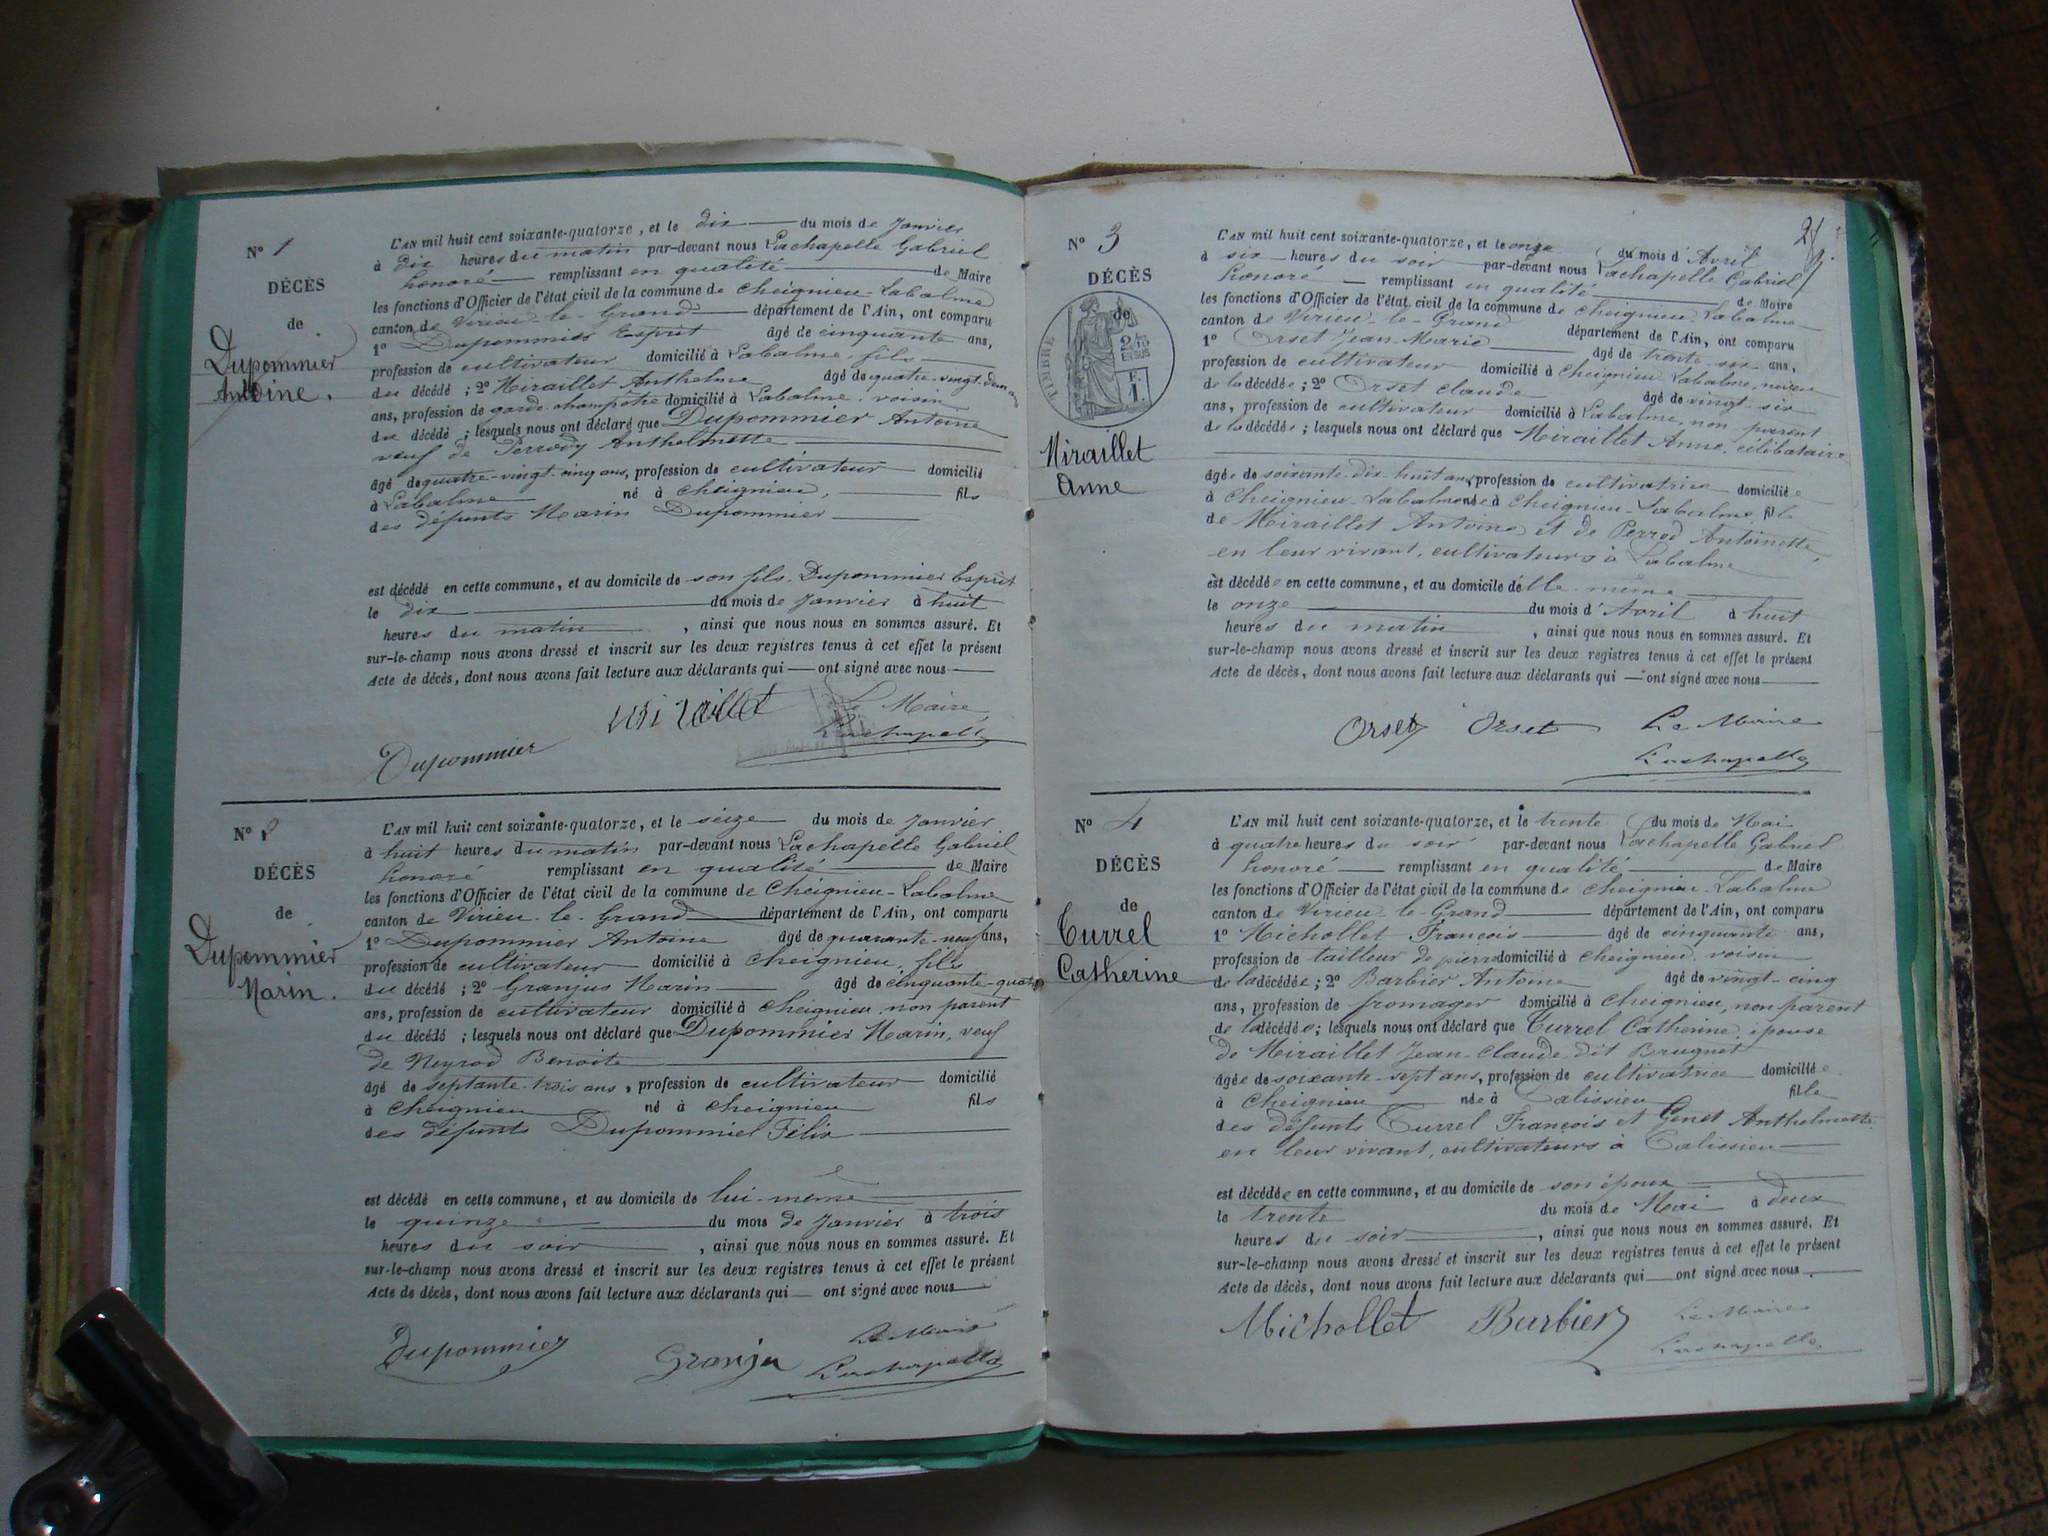 N° 1
DÉCÈS
de
Dupommier
Antoine.
L'AN mil huit cent soixante-quatorze, et le dix du mois de Janvier
à dix heures du matin par-devant nous Lachapelle Gabriel
honoré remplissant en qualité de Maire
les fonctions d'Officier de l'état civil de la commune de Cheignieu-Labalme
canton de Virieu-le-Grand département de l'Ain, ont comparu
1° Dupommier Esprit âgé de cinquante ans,
profession de cultivateur domicilié à Labalme, fils
du décédé ; 2° Miraillet Anthelme âgé de quatre-vingt-deux
ans, profession de garde-champêtre domicilié à Labalme, voisin
du décédé ; lesquels nous ont déclaré que Dupommier Antoine
veuf de Perrody Anthelmette
âgé de quatre-vingt-cinq ans, profession de cultivateur domicilié
à Labalme né à Cheignieu, fils
des défunts Marin Dupommier
est décédé en cette commune, et au domicile de son fils, Dupommier Esprit
le dix du mois de Janvier à huit
heures du matin , ainsi que nous nous en sommes assuré. Et
sur-le-champ nous avons dressé et inscrit sur les deux registres tenus à cet effet le présent
Acte de décès, dont nous avons fait lecture aux déclarants qui ont signé avec nous
Miraillet Le Maire
Dupommier Lachapelle
N° 2
DÉCÈS
de
Dupommier
Marin.
L'AN mil huit cent soixante-quatorze, et le seize du mois de Janvier
à huit heures du matin par-devant nous Lachapelle Gabriel
honoré remplissant en qualité de Maire
les fonctions d'Officier de l'état civil de la commune de Cheignieu-Labalme
canton de Virieu-le-Grand département de l'Ain, ont comparu
1° Dupommier Antoine âgé de quarante-neuf ans,
profession de cultivateur domicilié à Cheignieu, fils
du décédé ; 2° Granjus Marin âgé de cinquante-quatre
ans, profession de cultivateur domicilié à Cheignieu, non parent
du décédé ; lesquels nous ont déclaré que Dupommier Marin, veuf
de Neyrod Benoite
âgé de septante-trois ans, profession de cultivateur domicilié
à Cheignieu né à Cheignieu fils
des défunts Dupommier Félix
est décédé en cette commune, et au domicile de lui-même
le quinze du mois de Janvier à trois
heures du soir , ainsi que nous nous en sommes assuré. Et
sur-le-champ nous avons dressé et inscrit sur les deux registres tenus à cet effet le présent
Acte de décès, dont nous avons fait lecture aux déclarants qui ont signé avec nous
Dupommier Granju Le Maire
Lachapelle
N° 3
DÉCÈS
de
TIMBRE
2/10
EN SUS
F.
1.
Miraillet
Anne
L'AN mil huit cent soixante-quatorze, et le onze du mois d'Avril
à six heures du soir par-devant nous Lachapelle Gabriel
honoré remplissant en qualité de Maire
les fonctions d'Officier de l'état civil de la commune de Cheignieu Labalme
canton de Virieu-le-Grand département de l'Ain, ont comparu
1° Orset Jean-Marie âgé de trente-six ans,
profession de cultivateur domicilié à Cheignieu-Labalme, neveu
de la décédée ; 2° Orset Claude âgé de vingt-six
ans, profession de cultivateur domicilié à Labalme, non parent
de la décédée ; lesquels nous ont déclaré que Miraillet Anne, célibataire
âgée de soixante-dix-huit ans, profession de cultivatrice domiciliée
à Cheignieu-Labalme née à Cheignieu-Labalme, fille
de Miraillet Antoine et de Perrod Antoinette,
en leur vivant, cultivateurs à Labalme
est décédée en cette commune, et au domicile d'elle-même
le onze du mois d'Avril à huit
heures du matin , ainsi que nous nous en sommes assuré. Et
sur-le-champ nous avons dressé et inscrit sur les deux registres tenus à cet effet le présent
Acte de décès, dont nous avons fait lecture aux déclarants qui ont signé avec nous
Orset Orset Le Maire
Lachapelle
N° 4
DÉCÈS
de
Turrel
Catherine
L'AN mil huit cent soixante-quatorze, et le trente du mois de Mai
à quatre heures du soir par-devant nous Lachapelle Gabriel
honoré remplissant en qualité de Maire
les fonctions d'Officier de l'état civil de la commune de Cheignieu-Labalme
canton de Virieu-le-Grand département de l'Ain, ont comparu
1° Michollet François âgé de cinquante ans,
profession de tailleur de pierre domicilié à Cheignieu, voisin
de la décédée ; 2° Barbier Antoine âgé de vingt-cinq
ans, profession de fromager domicilié à Cheignieu, non parent
de la décédée ; lesquels nous ont déclaré que Turrel Catherine, épouse
de Miraillet Jean-Claude dit Brugnot
âgée de soixante-sept ans, profession de cultivatrice domiciliée
à Cheignieu née à Talissieu fille
des défunts Turrel François et Genet Anthelmette
en leur vivant, cultivateurs à Talissieu
est décédée en cette commune, et au domicile de son époux
le trente du mois de Mai à deux
heures du soir , ainsi que nous nous en sommes assuré. Et
sur-le-champ nous avons dressé et inscrit sur les deux registres tenus à cet effet le présent
Acte de décès, dont nous avons fait lecture aux déclarants qui ont signé avec nous
Michollet Barbier Le Maire
Lachapelle